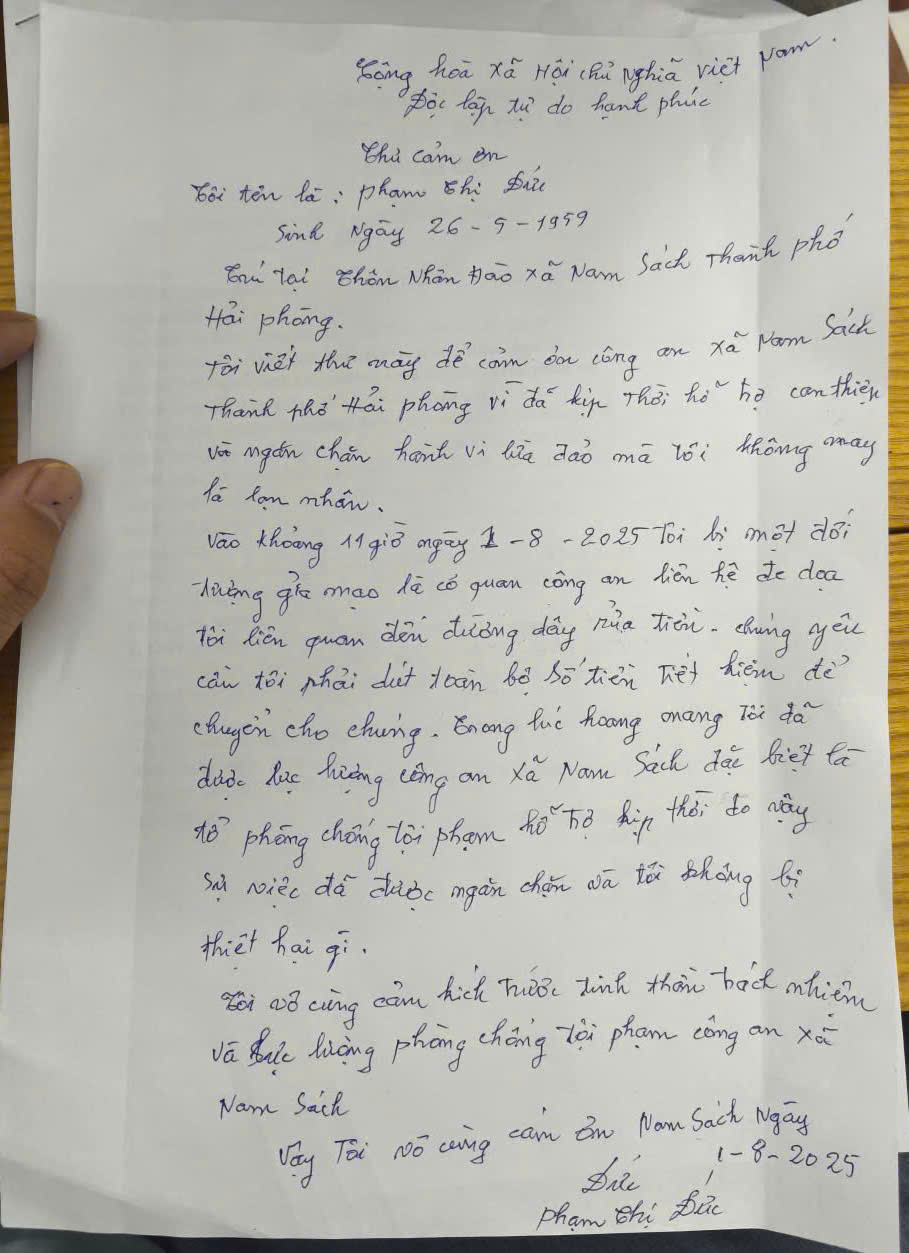 Cộng hoà xã Hội chủ nghĩa việt Nam.
Độc lập tự do hạnh phúc
Thư cảm ơn
Tôi tên là : phạm Thị Đức
Sinh Ngày 26 - 5 - 1959
Trú tại Thôn Nhân Đào xã Nam Sách Thành phố
Hải phòng.
Tôi viết thư này để cảm ơn công an xã Nam Sách
Thành phố Hải phòng vì đã kịp Thời hỗ trợ can thiệp
và ngăn chặn hành vi lừa đảo mà tôi không may
là lạn nhân.
Vào khoảng 11 giờ ngày 1 - 8 - 2025 Tôi bị một đối
tượng giả mạo là cơ quan công an liên hệ đe doạ
tôi liên quan đến đường dây rửa tiền - chúng yêu
cầu tôi phải dút toàn bộ số tiền Tiết kiệm để
chuyển cho chúng. Trong lúc hoang mang Tôi đã
được lực lượng công an xã Nam Sách đặc biệt là
tổ phòng chống tội phạm hỗ trợ kịp thời do vậy
sự việc đã được ngăn chặn và tôi không bị
thiệt hại gì.
Tôi vô cùng cảm kích trước tinh thần trách nhiệm
và lực lượng phòng chống tội phạm công an xã
Nam Sách
Vậy Tôi vô cùng cảm ơn Nam Sách Ngày
1 - 8 - 2025
Đức
phạm Thị Đức